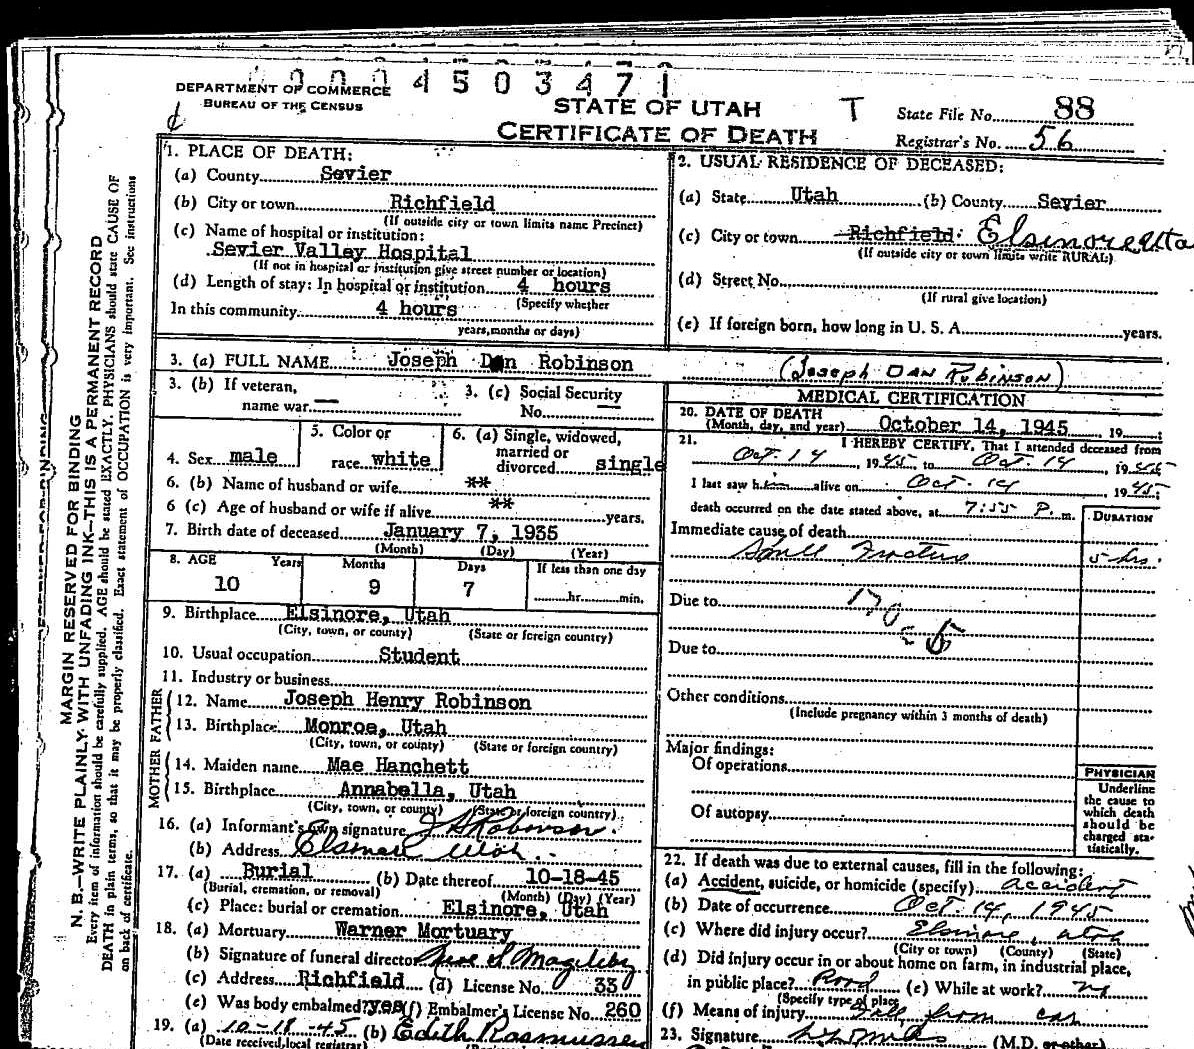 0004503471
DEPARTMENT OF COMMERCE
BUREAU OF THE CENSUS
STATE OF UTAH
CERTIFICATE OF DEATH
T
State File No. 88
Registrar's No. 56
MARGIN RESERVED FOR BINDING
N. B.—WRITE PLAINLY WITH UNFADING INK—THIS IS A PERMANENT RECORD
Every item of information should be carefully supplied. AGE should be stated EXACTLY. PHYSICIANS should state CAUSE OF
DEATH in plain terms, so that it may be properly classified. Exact statement of OCCUPATION is very important. See instructions
on back of certificate.
1. PLACE OF DEATH:
(a) County Sevier
(b) City or town Richfield
(If outside city or town limits name Precinct)
(c) Name of hospital or institution:
Sevier Valley Hospital
(If not in hospital or institution give street number or location)
(d) Length of stay: In hospital or institution 4 hours
(Specify whether
In this community 4 hours
years, months or days)
2. USUAL RESIDENCE OF DECEASED:
(a) State Utah (b) County Sevier
(c) City or town Richfield Elsinore
(If outside city or town limits write RURAL)
(d) Street No.
(If rural give location)
(e) If foreign born, how long in U. S. A. years.
3. (a) FULL NAME Joseph Dan Robinson (Joseph DAN ROBINSON)
3. (b) If veteran,
name war —
3. (c) Social Security
No. —
4. Sex male
5. Color or
race white
6. (a) Single, widowed,
married or
divorced single
6. (b) Name of husband or wife **
6 (c) Age of husband or wife if alive ** years.
7. Birth date of deceased January 7, 1935
(Month) (Day) (Year)
8. AGE Years Months Days If less than one day
10 9 7 hr. min.
9. Birthplace Elsinore, Utah
(City, town, or county) (State or foreign country)
10. Usual occupation Student
11. Industry or business
FATHER
12. Name Joseph Henry Robinson
13. Birthplace Monroe, Utah
(City, town, or county) (State or foreign country)
MOTHER
14. Maiden name Mae Hanchett
15. Birthplace Annabella, Utah
(City, town, or county) (State or foreign country)
16. (a) Informant's own signature J H Robinson
(b) Address Elsinore Utah
17. (a) Burial (b) Date thereof 10-18-45
(Burial, cremation, or removal) (Month) (Day) (Year)
(c) Place: burial or cremation Elsinore, Utah
18. (a) Mortuary Warner Mortuary
(b) Signature of funeral director Magleby
(c) Address Richfield (d) License No. 330
(e) Was body embalmed? yes (f) Embalmer's License No. 260
19. (a) 10-18-45 (b) Edith Rasmussen
(Date received, local registrar)
MEDICAL CERTIFICATION
20. DATE OF DEATH
(Month, day, and year) October 14, 1945, 19 ;
21. I HEREBY CERTIFY, That I attended deceased from
Oct. 14, 1945, to Oct. 14, 1945
I last saw him alive on Oct. 14 1945;
death occurred on the date stated above, at 7:55 P. m.
DURATION
Immediate cause of death
Skull Fracture 5 hrs.
Due to 170c
Due to
Other conditions
(Include pregnancy within 3 months of death)
Major findings:
Of operations
Of autopsy
PHYSICIAN
Underline
the cause to
which death
should be
charged sta-
tistically.
22. If death was due to external causes, fill in the following:
(a) Accident, suicide, or homicide (specify) accident
(b) Date of occurrence Oct. 14, 1945
(c) Where did injury occur? Elsinore, Utah
(City or town) (County) (State)
(d) Did injury occur in or about home on farm, in industrial place,
in public place? Road (e) While at work? no
(Specify type of place)
(f) Means of injury Fall from car
23. Signature (M.D. or other)